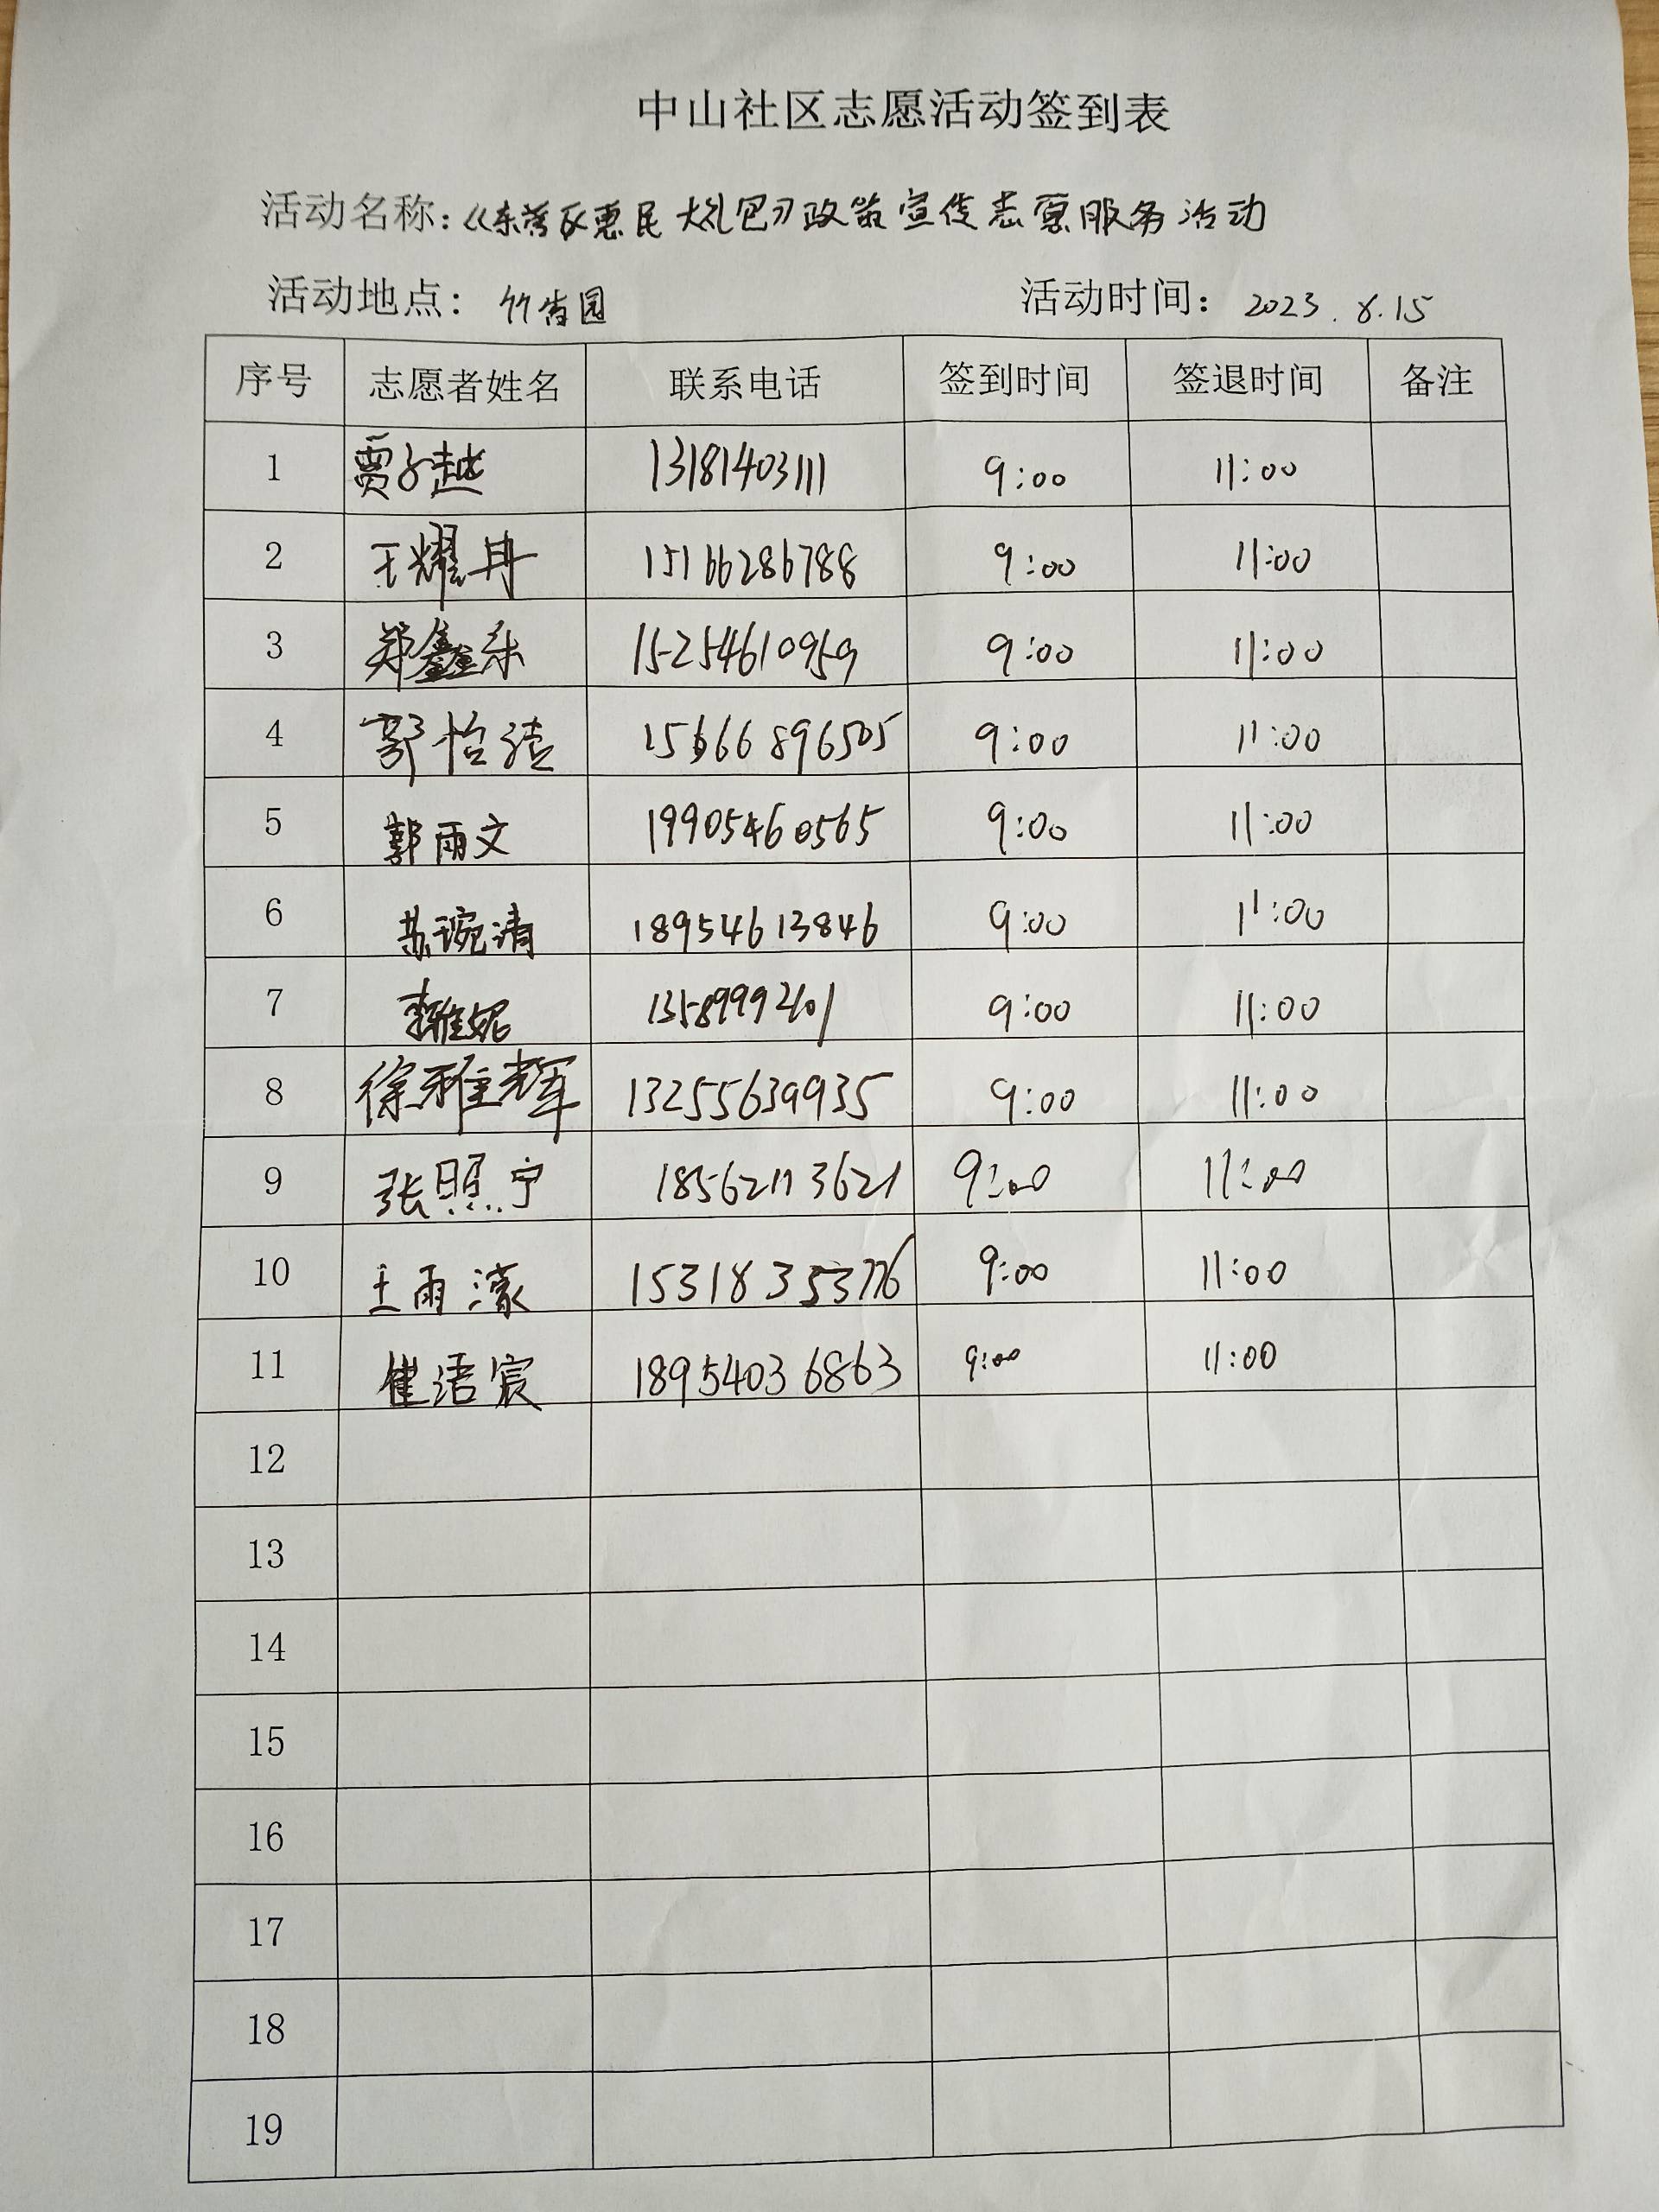 中山社区志愿活动签到表
活动名称:《东营区惠民大礼包》政策宣传志愿服务活动
活动地点: 竹香园 活动时间: 2023.8.15
序号 志愿者姓名 联系电话 签到时间 签退时间 备注
1 贾子越 13181403111 9:00 11:00
2 王耀冉 15166286788 9:00 11:00
3 郑鑫乐 15254610959 9:00 11:00
4 郭怡 15666896505 9:00 11:00
5 郭雨文 19905460565 9:00 11:00
6 苏琬清 18954613846 9:00 11:00
7 李雅妮 9:00 11:00
8 徐雅辉 13255639935 9:00 11:00
9 张照宁 18562113621 9:00 11:00
10 王雨濛 15318353776 9:00 11:00
11 崔语宸 18954036863 9:00 11:00
12
13
14
15
16
17
18
19